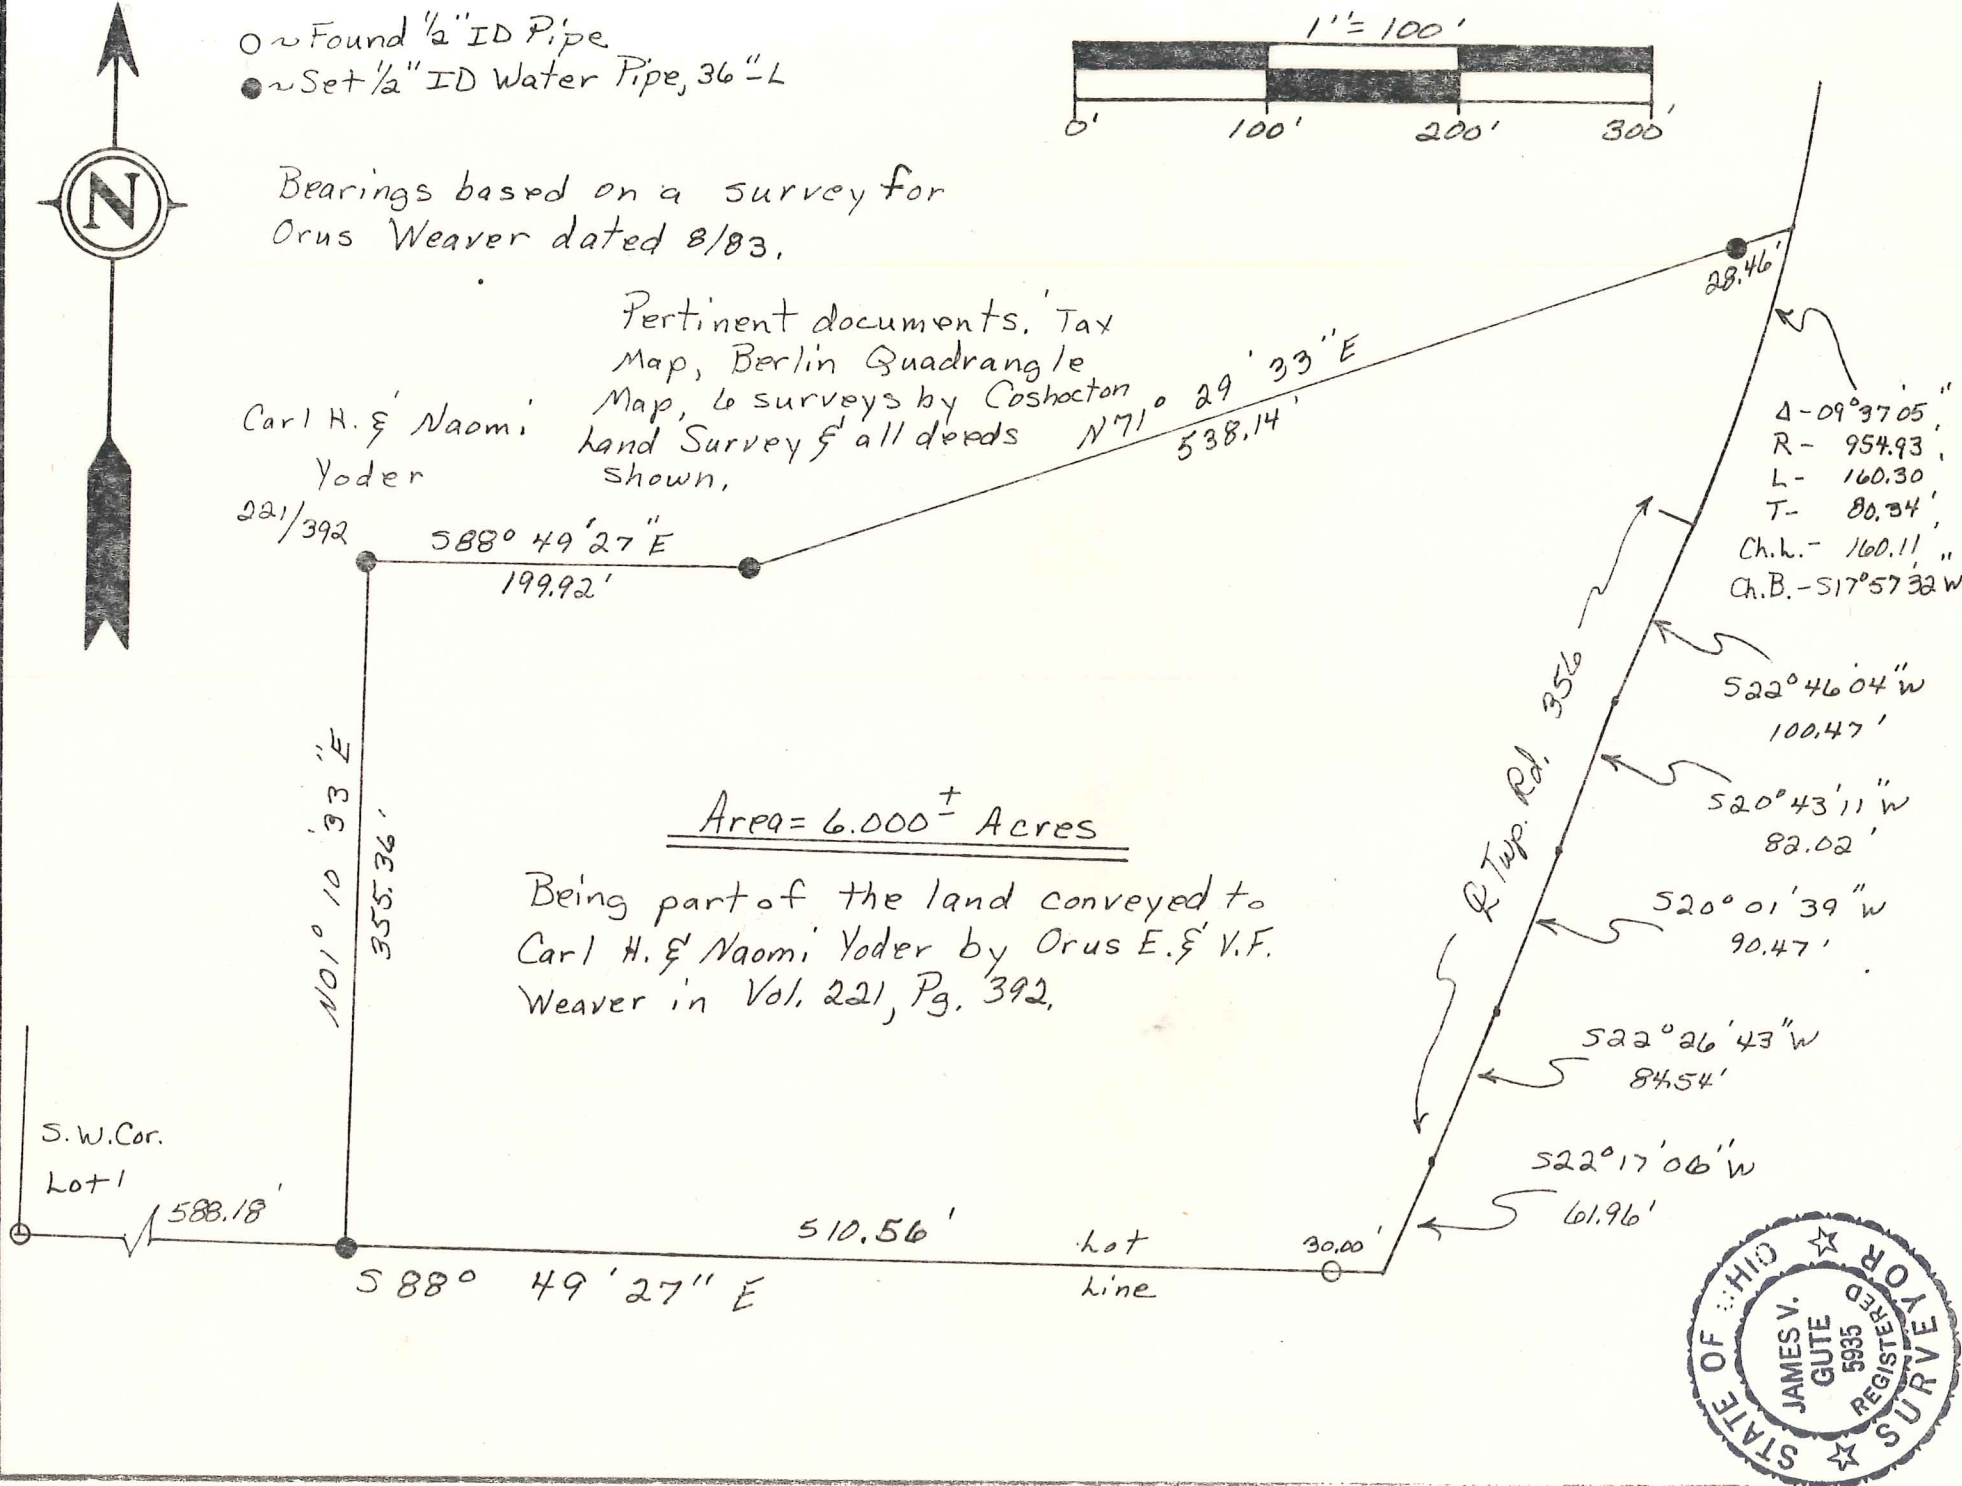 N
○ ~ Found 1/2" ID Pipe
● ~ Set 1/2" ID Water Pipe, 36"-L
1" = 100'
0' 100' 200' 300'
Bearings based on a survey for
Orus Weaver dated 8/83.
Pertinent documents. Tax
Map, Berlin Quadrangle
Map, 6 surveys by Coshocton
Land Survey & all deeds
shown.
Carl H. & Naomi
Yoder
221/392
S88° 49' 27" E
199.92'
N71° 29' 33" E
538.14'
28.46'
Δ - 09° 37' 05"
R - 954.93'
L - 160.30'
T - 80.34'
Ch.L. - 160.11'
Ch.B. - S17° 57' 32" W
S22° 46' 04" W
100.47'
S20° 43' 11" W
82.02'
S20° 01' 39" W
90.47'
S22° 26' 43" W
84.54'
S22° 17' 06" W
61.96'
℄ Twp. Rd. 356
N01° 10' 33" E
355.36'
Area = 6.000± Acres
Being part of the land conveyed to
Carl H. & Naomi Yoder by Orus E. & V.F.
Weaver in Vol. 221, Pg. 392.
S.W. Cor.
Lot 1
588.18'
510.56'
Lot
Line
30.00'
S 88° 49' 27" E
STATE OF OHIO
REGISTERED
SURVEYOR
JAMES V.
GUTE
5935